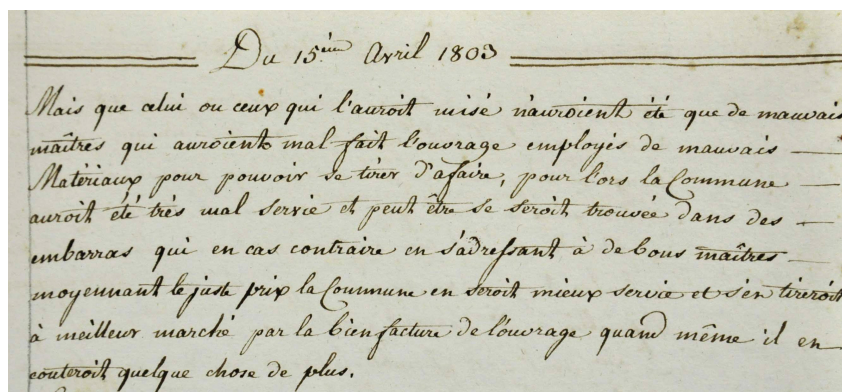 Du 15.ème Avril 1803
Mais que celui ou ceux qui l'auroit misé n'auroient été que de mauvais
maîtres qui auroient mal fait l'ouvrage employés de mauvais —
Matériaux pour pouvoir se tirer d'afaire, pour l'ors la Commune —
auroit été trés mal servie et peut être se seroit trouvée dans des —
embarras qui en cas contraire en s'adressant à de bons maîtres —
moyennant le juste prix la Commune en seroit mieux servie et s'en tireroit
à meilleur marché par la bienfacture de l'ouvrage quand même il en
couteroit quelque chose de plus.